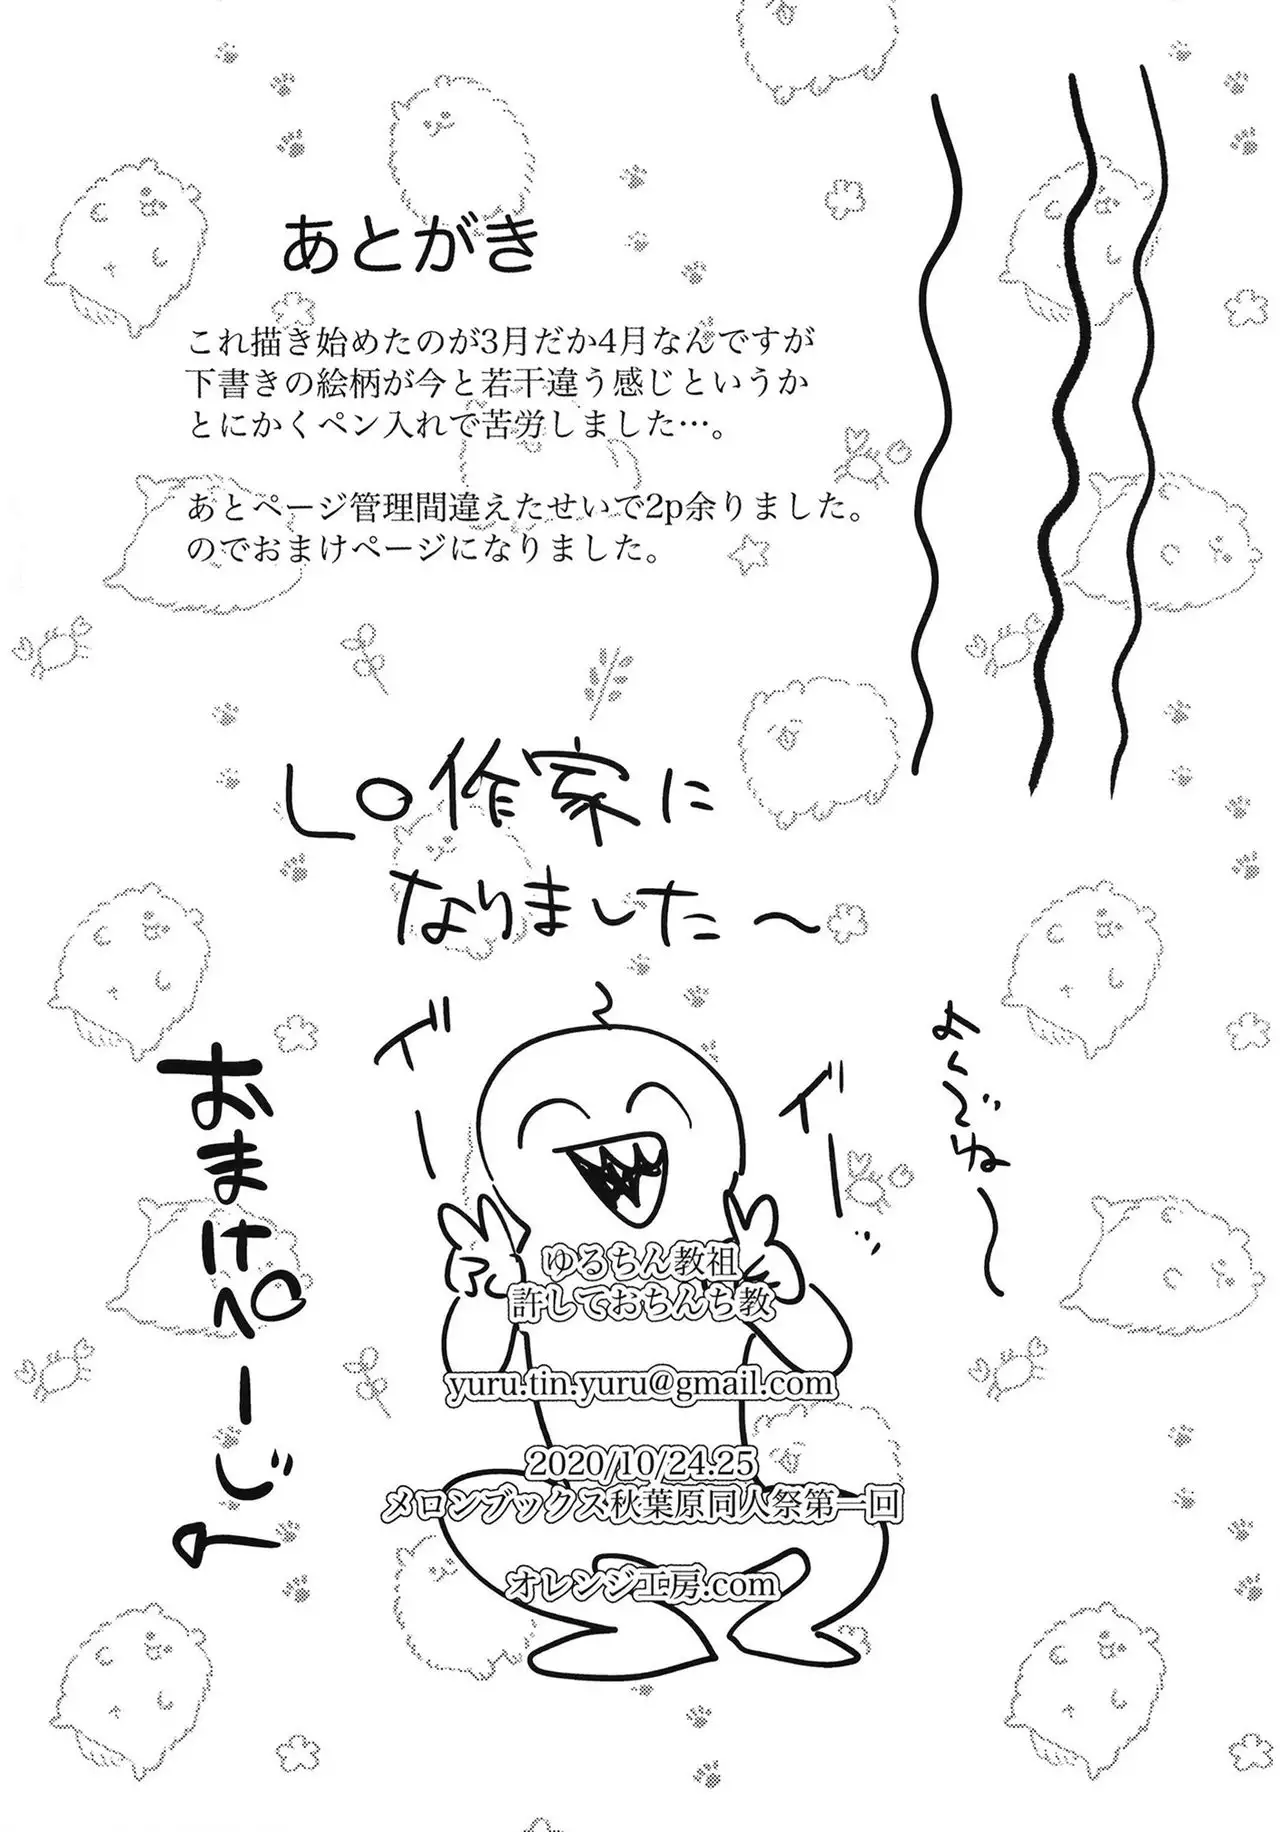 あとがき
これ描き始めたのが3月だか4月なんですが
下書きの絵柄が今と若干違う感じというか
とにかくペン入れで苦労しました…。
あとページ管理間違えたせいで2p余りました。
のでおまけページになりました。
LO作家に
なりました〜
イェー
イェー
おまけぺーじ
ゆるちん教祖
許しておちんち教
yuru.tin.yuru@gmail.com
2020/10/24.25
メロンブックス秋葉原同人祭第一回
オレンジ工房.com